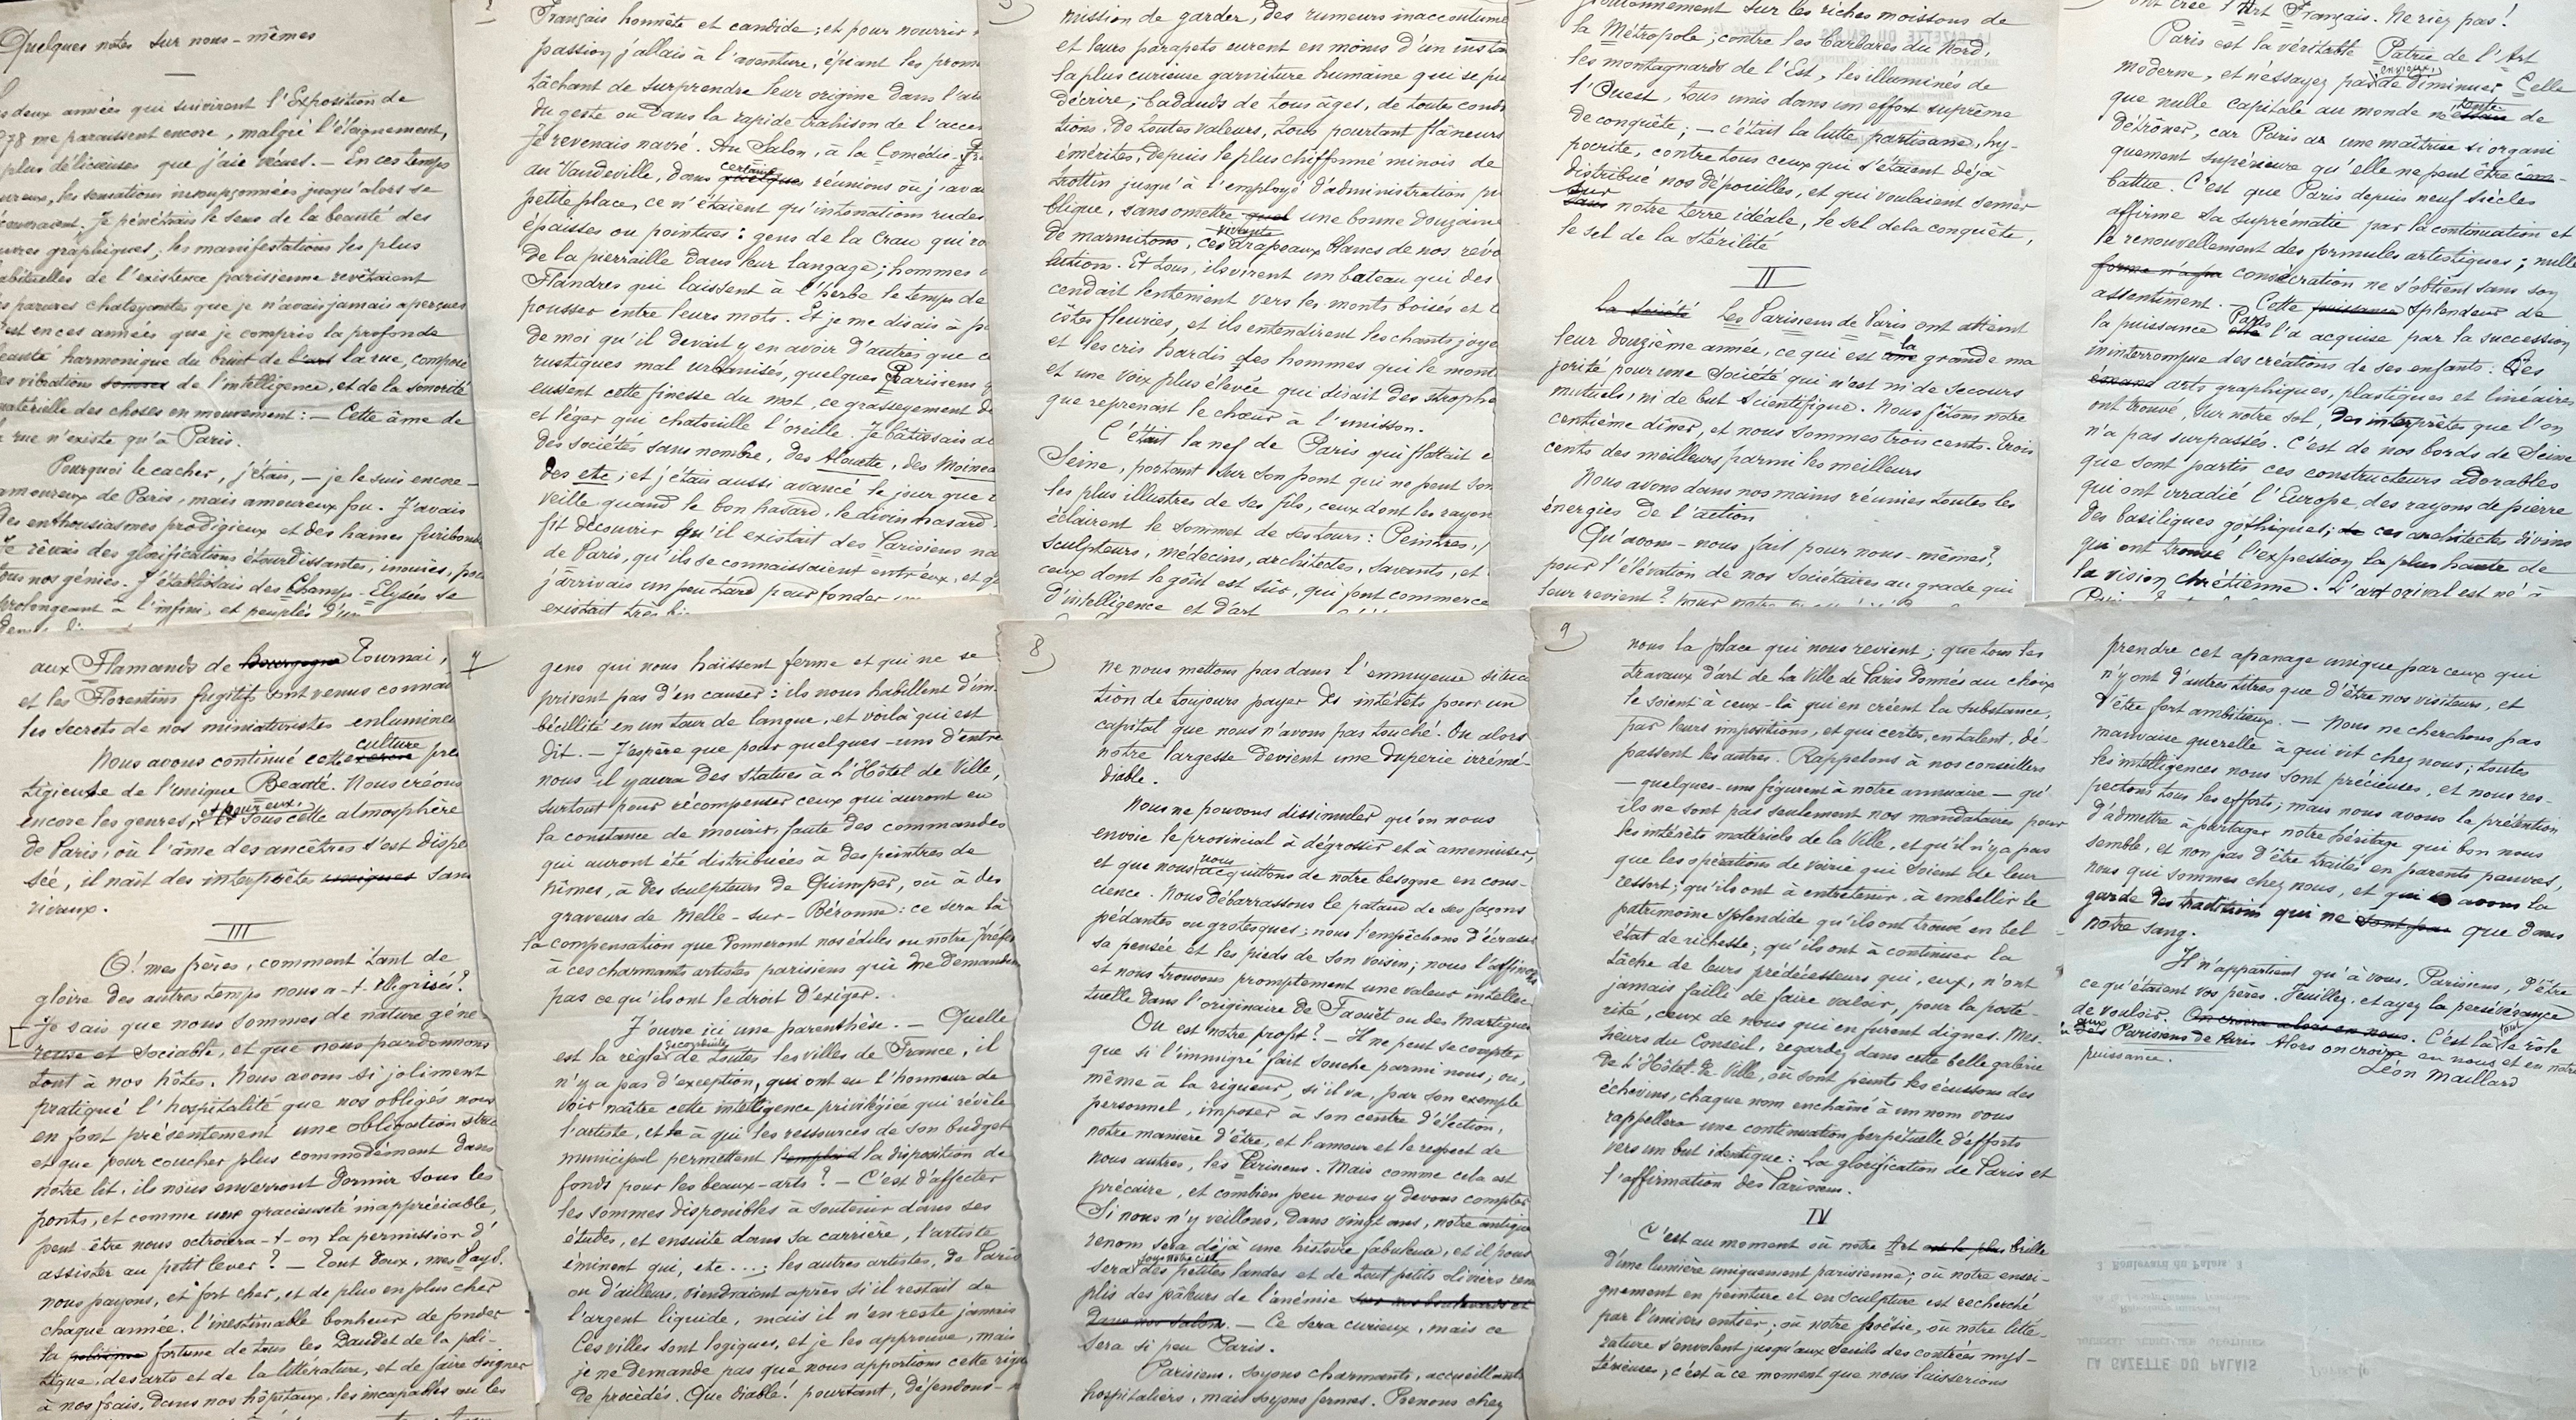 Quelques notes sur nous-mêmes
deux années qui suivirent l'Exposition de
78 me paraissent encore, malgré l'éloignement,
plus délicieuses que j'aie vécues. — En ces temps
les sensations insoupçonnées jusqu'alors se
Je pénétrais le sens de la beauté des
graphiques; les manifestations les plus
de l'existence parisienne revêtaient
parures chatoyantes que je n'avais jamais aperçues
est en ces années que je compris la profonde
harmonique du bruit de la rue, composé
vibrations de l'intelligence, et de la sonorité
matérielle des choses en mouvement: — Cette âme de
rue n'existe qu'à Paris.
Pourquoi le cacher, j'étais, — je le suis encore —
amoureux de Paris, mais amoureux fou. J'avais
des enthousiasmes prodigieux et des haines furibondes
Je rêvais des glorifications étourdissantes, inouies, pour
tous nos génies. J'établissais des Champs-Elysées se
prolongeant à l'infini, et peuplés d'un
2
Français honnête et candide; et pour nourrir
passion, j'allais à l'aventure, épiant les prom
tâchant de surprendre leur origine dans l'
du geste ou dans la rapide trahison de l'accen
Je revenais navré. Au Salon, à la Comédie-Fr
au Vaudeville, dans certaines quelques réunions où j'ava
petite place, ce n'étaient qu'intonations rudes
épaisses ou pointues: gens de la Crau qui
de la pierraille dans leur langage; hommes
Flandres qui laissent à l'herbe le temps de
pousser entre leurs mots. Et je me disais à p
de moi qu'il devait y en avoir d'autres que c
rustiques mal urbanisés, quelques Parisiens q
eussent cette finesse du mot, ce grasseyement d
et léger qui chatouille l'oreille. Je bâtissais
des sociétés sans nombre, des Alouette, des Moinea
des etc; et j'étais aussi avancé le jour que
veille quand le bon hasard, le divin hasard
fit découvrir qu'il existait des Parisiens na
de Paris, qu'ils se connaissaient entr'eux, et q
j'arrivais un peu tard pour fonder
existait très bi
3
mission de garder, des rumeurs inaccoutumé
et leurs parapets eurent en moins d'un insta
la plus curieuse garniture humaine qui se pu
décrire; badauds de tous âges, de toutes condi
tions. De toutes valeurs, tous pourtant flâneurs
émérites, depuis le plus chiffonné minois de
trottin jusqu'à l'employé d'administration pu
blique, sans omettre une bonne douzaine
de marmitons, ces vivants drapeaux blancs de nos révo
lutions. Et tous, ils virent un bateau qui des
cendait lentement vers les monts boisés et
côtes fleuries, et ils entendirent les chants joye
et les cris hardis des hommes qui le mont
et une voix plus élevée qui disait des strophe
que reprenait le chœur à l'unisson.
C'était la nef de Paris qui flottait
Seine, portant sur son pont qui ne peut som
les plus illustres de ses fils, ceux dont les rayon
éclairent le sommet de ses tours: Peintres,
sculpteurs, médecins, architectes, savants, et
ceux dont le goût est sûr, qui font commerce
d'intelligence et d'art
gloutonnement sur les riches moissons de
la Métropole; contre les barbares du Nord,
les montagnards de l'Est, les illuminés de
l'Ouest, tous unis dans un effort suprême
de conquête; — c'était la lutte partisane, hy-
pocrite, contre tous ceux qui s'étaient déjà
distribué nos dépouilles, et qui voulaient semer
sur notre terre idéale, le sel de la conquête,
le sel de la stérilité
II
La Société Les Parisiens de Paris ont atteint
leur douzième année, ce qui est la grande ma
jorité pour une Société qui n'est ni de secours
mutuels, ni de but scientifique. Nous fêtons notre
centième dîner, et nous sommes trois cents. Trois
cents des meilleurs parmi les meilleurs
Nous avons dans nos mains réunies toutes les
énergies de l'action
Qu'avons-nous fait pour nous-mêmes?
pour l'élévation de nos Sociétaires au grade qui
leur revient?
ont créé l'Art Français. Ne riez pas!
Paris est la véritable Patrie de l'Art
moderne, et n'éssayez pas, envieux, de diminuer Celle
que nulle capitale au monde ne tente de
détrôner, car Paris a une maîtrise si organi
quement supérieure qu'elle ne peut être com-
battue. C'est que Paris depuis neuf siècles
affirme sa suprématie par la continuation et
le renouvellement des formules artistiques; nulle
consécration ne s'obtient sans son
assentiment. — Cette puissance splendeur de
la puissance Paris l'a acquise par la succession
ininterrompue des créations de ses enfants: Des
arts graphiques, plastiques et linéaires
ont trouvé, sur notre sol, des interprètes que l'on
n'a pas surpassés. C'est de nos bords de Seine
que sont partis ces constructeurs adorables
qui ont irradié l'Europe des rayons de pierre
des basiliques gothiques; ces architectes divins
qui ont trouvé l'expession la plus haute de
la vision chrétienne. L'art ogival est né à
aux Flamands de Bourgogne Tournai,
et les Florentins fugitifs sont venus connaî
les secrets de nos miniaturistes enlumine
Nous avons continué cette culture pres
tigieuse de l'unique Beauté. Nous créons
encore les genres, et pour eux, sous cette atmosphère
de Paris, où l'âme des ancêtres s'est disper
sée, il naît des interprètes uniques sans
rivaux.
III
O! mes frères, comment tant de
gloire des autres temps nous a-t-elle grisés?
Je sais que nous sommes de nature géné
reuse et sociable, et que nous pardonnons
tout à nos hôtes. Nous avons si joliment
pratiqué l'hospitalité que nos obligés nous
en font présentement une obligation stric
et que pour coucher plus commodément dans
notre lit, ils nous enverront dormir sous les
ponts, et comme une gracieuseté inappréciable,
peut-être nous octroiera-t-on la permission d'
assister au petit lever? — Tout doux, mes Pays.
nous payons, et fort cher, et de plus en plus cher
chaque année. l'inestimable bonheur de fonder
la politique fortune de tous les Daudet de la poli-
tique, des arts et de la littérature, et de faire soigner
à nos frais, dans nos hôpitaux, les incapables ou les
7
gens qui nous haïssent ferme et qui ne se
privent pas d'en causer: ils nous habillent d'im-
bécillité en un tour de langue, et voilà qui est
dit. — J'espère que pour quelques-uns d'entre
nous il y aura des statues à L'Hôtel de Ville,
surtout pour récompenser ceux qui auront eu
la constance de mourir, faute des commandes
qui auront été distribuées à des peintres de
Nîmes, à des sculpteurs de Quimper, où à des
graveurs de Melle-sur-Béronne: ce sera là
la compensation que donneront nos édiles ou notre Préfet
à ces charmants artistes parisiens qui ne demandent
pas ce qu'ils ont le droit d'exiger.
J'ouvre ici une parenthèse. — Quelle
est la règle de toutes les villes de France, il
n'y a pas d'exception, qui ont eu l'honneur de
voir naître cette intelligence privilégiée qui révèle
l'artiste, et à qui les ressources de son budget
municipal permettent l'emploi la disposition de
fonds pour les beaux-arts? — C'est d'affecter
les sommes disponibles à soutenir dans ses
études, et ensuite dans sa carrière, l'artiste
éminent qui, etc....; les autres artistes, de Paris
ou d'ailleurs, viendraient après s'il restait de
l'argent liquide, mais il n'en reste jamais
Ces villes sont logiques, et je les approuve, mais
je ne demande pas que nous apportions cette rigu
de procédés. Que diable! pourtant, défendons-n
8
ne nous mettons pas dans l'ennuyeuse situa
tion de toujours payer des intérêts pour un
capital que nous n'avons pas touché. Ou alors
notre largesse devient une duperie irrémé-
diable.
Nous ne pouvons dissimuler qu'on nous
envoie le provincial à dégrossir et à amenuiser,
et que nous nous acquittons de notre besogne en cons-
cience. Nous débarrassons le pataud de ses façons
pédantes ou grotesques; nous l'empêchons d'écraser
sa pensée et les pieds de son voisin; nous l'affinons
et nous trouvons promptement une valeur intellec
tuelle dans l'originaire de Faouët ou des Martigues
Ou est notre profit? — Il ne peut se compter
que si l'immigré fait souche parmi nous; ou,
même à la rigueur, s'il va, par son exemple
personnel, imposer à son centre d'élection,
notre manière d'être, et l'amour et le respect de
nous autres, les Parisiens. Mais comme cela est
précaire, et combien peu nous y devons compter
Si nous n'y veillons, dans vingt ans, notre antique
renom sera déjà une histoire fabuleuse, et il pous
sera sous notre ciel des petites landes et de tout petits oliviers rem
plis des pâleurs de l'anémie sur nos boulevards et
dans nos salons. — Ce sera curieux, mais ce
sera si peu Paris.
Parisiens, soyons charmants, accueillants
hospitaliers, mais soyons fermes. Prenons chez
9
nous la place qui nous revient; que tous les
travaux d'art de la Ville de Paris donnés au choix
le soient à ceux-là qui en créent la substance,
par leurs impositions, et qui certes, en talent, dé-
passent les autres. Rappelons à nos conseillers
— quelques-uns figurent à notre annuaire — qu'
ils ne sont pas seulement nos mandataires pour
les intérêts matériels de la Ville, et qu'il n'y a pas
que les opérations de voirie qui soient de leur
ressort; qu'ils ont à entretenir, à embellir le
patrimoine splendide qu'ils ont trouvé en bel
état de richesse; qu'ils ont à continuer la
tâche de leurs prédécesseurs qui, eux, n'ont
jamais failli de faire valoir, pour la posté-
rité, ceux de nous qui en furent dignes. Mes-
sieurs du Conseil, regardez dans cette belle galerie
de L'Hôtel-de-Ville, où sont peints les écussons des
échevins, chaque nom enchaîné à un nom vous
rappellera une continuation perpétuelle d'efforts
vers un but identique: La glorification de Paris et
l'affirmation des Parisiens.
IV
C'est au moment où notre Art est le plus brille
d'une lumière uniquement parisienne; où notre ensei-
gnement en peinture et en sculpture est recherché
par l'univers entier; où notre poësie, où notre litté-
rature s'envolent jusqu'aux seuils des contrées mys-
térieuses; c'est à ce moment que nous laisserions
prendre cet apanage unique par ceux qui
n'y ont d'autres titres que d'être nos visiteurs, et
d'être fort ambitieux. — Nous ne cherchons pas
mauvaise querelle à qui vit chez nous; toutes
les intelligences nous sont précieuses, et nous res-
pectons tous les efforts; mais nous avons la prétention
d'admettre à partager notre héritage qui bon nous
semble, et non pas d'être traités en parents pauvres,
nous qui sommes chez nous, et qui avons la
garde des traditions qui ne sont pas que dans
notre sang.
Il n'appartient qu'à vous, Parisiens, d'être
ce qu'étaient vos pères. Veuillez, et ayez la persévérance
de vouloir. On croira alors en nous. C'est là tout le rôle
des Parisiens de Paris Alors on croira en nous et en notre
puissance.
Léon Maillard
3 Boulevard du Palais 3
LA GAZETTE DU PALAIS